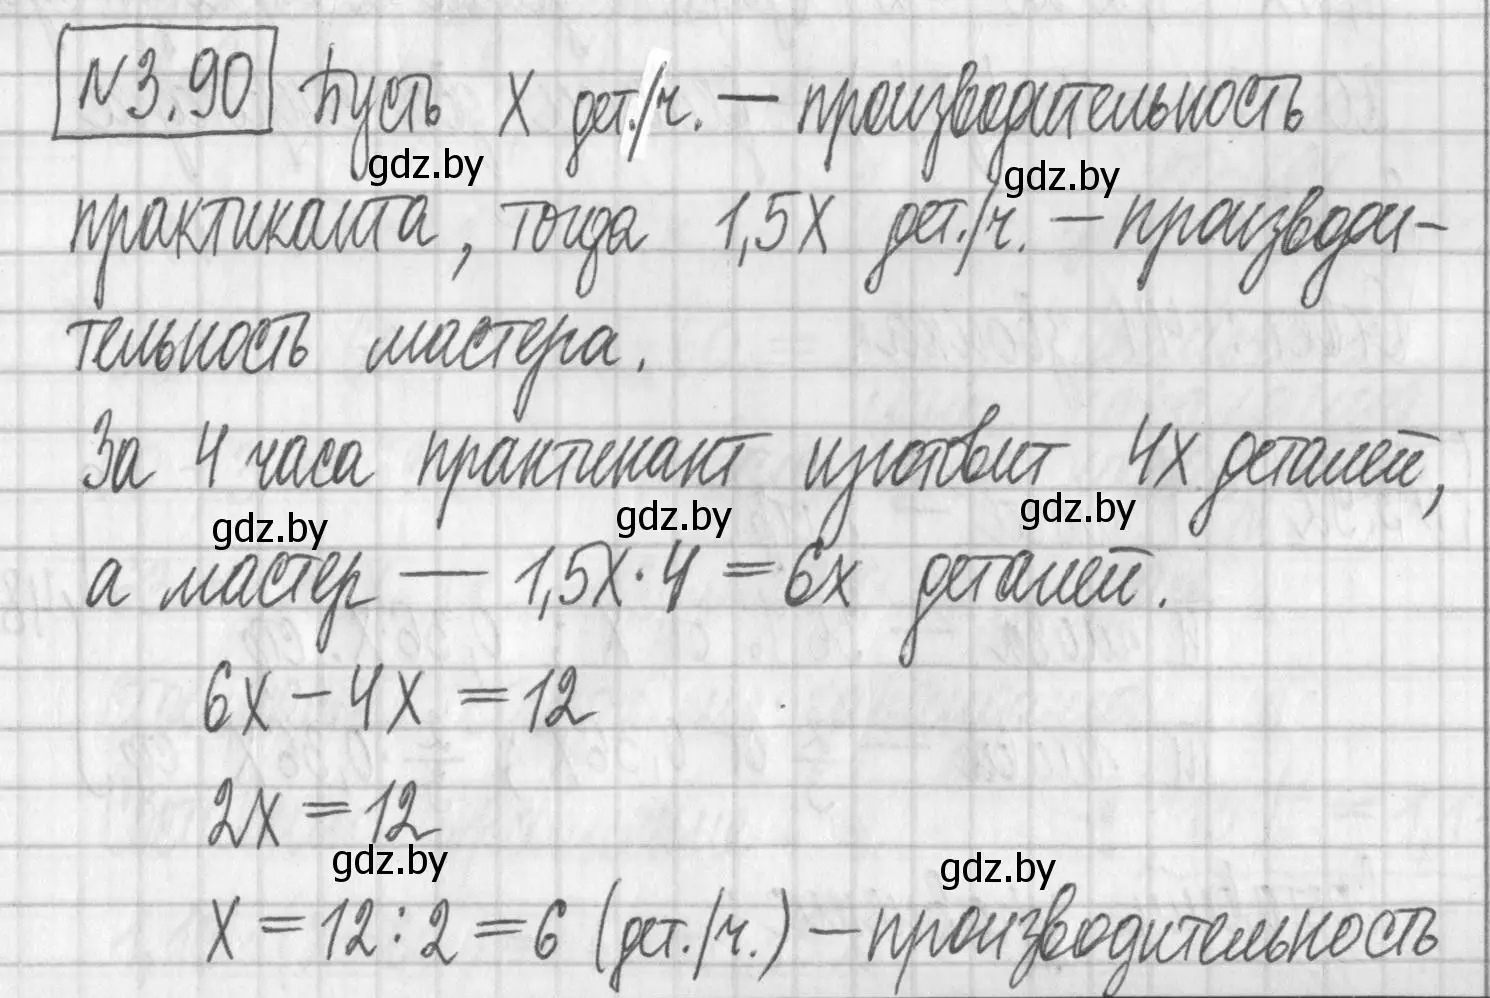 №3.90 Пусть x дет./ч. — производительность
gdz.by gdz.by
практиканта, тогда 1,5x дет./ч. — производи-
тельность мастера.
За 4 часа практикант изготовит 4x деталей,
gdz.by gdz.by gdz.by
а мастер — 1,5x·4 = 6x деталей.
6x − 4x = 12
2x = 12
gdz.by gdz.by
x = 12 : 2 = 6 (дет./ч.) — производительность